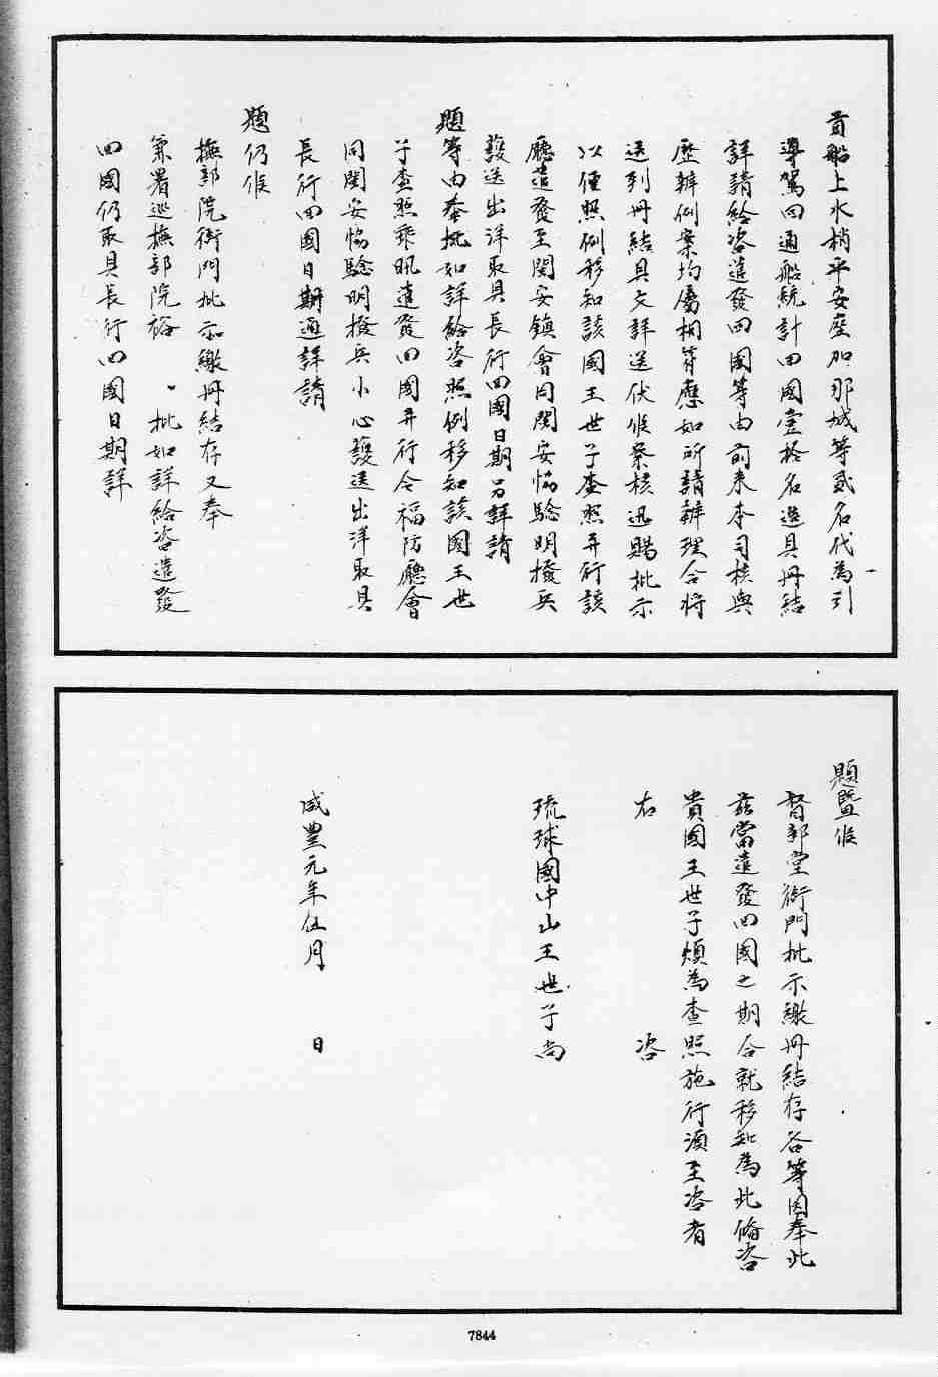 貢船上水梢平安座加那城等貳名代為引
導駕回通船統計回國壹拾名造具冊結
詳請給咨遣發回國等由前來本司核與
歷辦例案均屬相符應如所請辦理合將
送到冊結具文詳送伏候察核迅賜批示
以便照例移知該國王世子查照并行該
廳遣發至閩安鎮會同閩安協驗明撥兵
護送出洋取具長行回國日期另詳請
題等由奉批如詳給咨照例移知該國王世
子查照乘汛遣發回國并行令福防廳會
同閩安協驗明撥兵小心護送出洋取具
長行回國日期通詳請
題仍候
撫部院衙門批示繳冊結存又奉
兼署巡撫部院裕 批如詳給咨遣發
回國仍取具長行回國日期詳
題暨候
督部堂衙門批示繳冊結存各等因奉此
茲當遣發回國之期合就移知為此備咨
貴國王世子煩為查照施行須至咨者
右 咨
琉球國中山王世子尚
咸豐元年伍月 日
7844